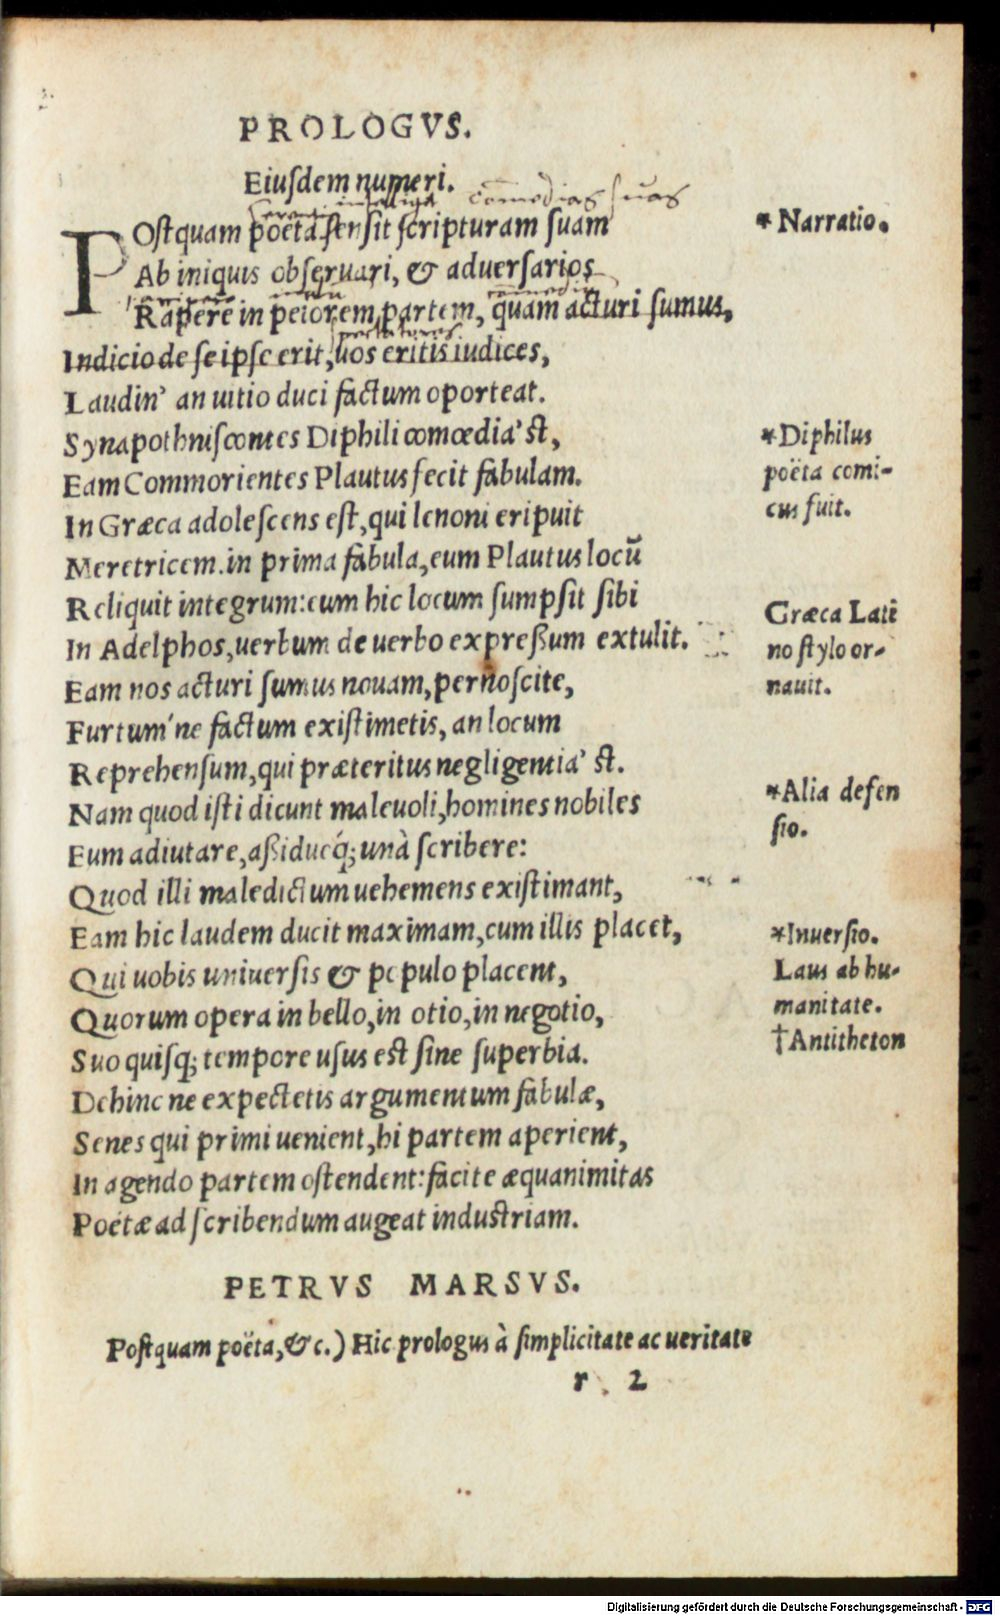 PROLOGVS.
Eiuſdem numeri.
comedias ſuas
POſtquam poëta ſenſit ſcripturam ſuam
Ab iniquis obſeruari, & aduerſarios
Rapere in peiorem partem, quam acturi ſumus,
Indicio de ſe ipſe erit, uos eritis iudices,
Laudin' an uitio duci factum oporteat.
Synapothniſcontes Diphili comœdia'ſt,
Eam Commorientes Plautus fecit fabulam.
In Græca adoleſcens eſt, qui lenoni eripuit
Meretricem.in prima fabula, eum Plautus locū
Reliquit integrum: eum hic locum ſumpſit ſibi
In Adelphos, uerbum de uerbo expreßum extulit.
Eam nos acturi ſumus nouam, pernoſcite,
Furtum'ne factum exiſtimetis, an locum
Reprehenſum, qui præteritus negligentia'ſt.
Nam quod iſti dicunt maleuoli, homines nobiles
Eum adiutare, aßidueq́; unà ſcribere:
Quod illi maledictum uehemens exiſtimant,
Eam hic laudem ducit maximam, cum illis placet,
Qui uobis uniuerſis & populo placent,
Quorum opera in bello, in otio, in negotio,
Suo quiſq; tempore uſus eſt ſine ſuperbia.
Dehinc ne expectetis argumentum fabulæ,
Senes qui primi uenient, hi partem aperient,
In agendo partem oſtendent: facite æquanimitas
Poëtæ ad ſcribendum augeat induſtriam.
*Narratio.
*Diphilus
poëta comi-
cus fuit.
Græca Lati
no ſtylo or-
nauit.
*Alia defen
ſio.
*Inuerſio.
Laus ab hu-
manitate.
†Antitheton
PETRVS MARSVS.
Poſtquam poëta, &c.) Hic prologus à ſimplicitate ac ueritate
r 2
Digitalisierung gefördert durch die Deutsche Forschungsgemeinschaft - DFG